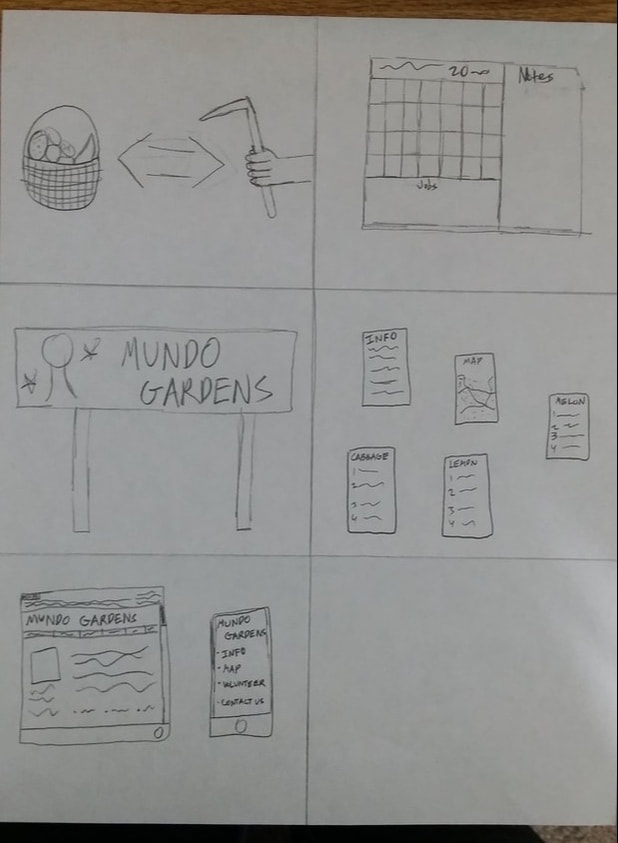 20
Notes
Jobs
MUNDO
GARDENS
INFO
MAP
MELON
1
2
3
4
CABBAGE
1
2
3
4
LEMON
1
2
3
4
MUNDO GARDENS
MUNDO
GARDENS
- INFO
- MAP
- VOLUNTEER
- CONTACT US